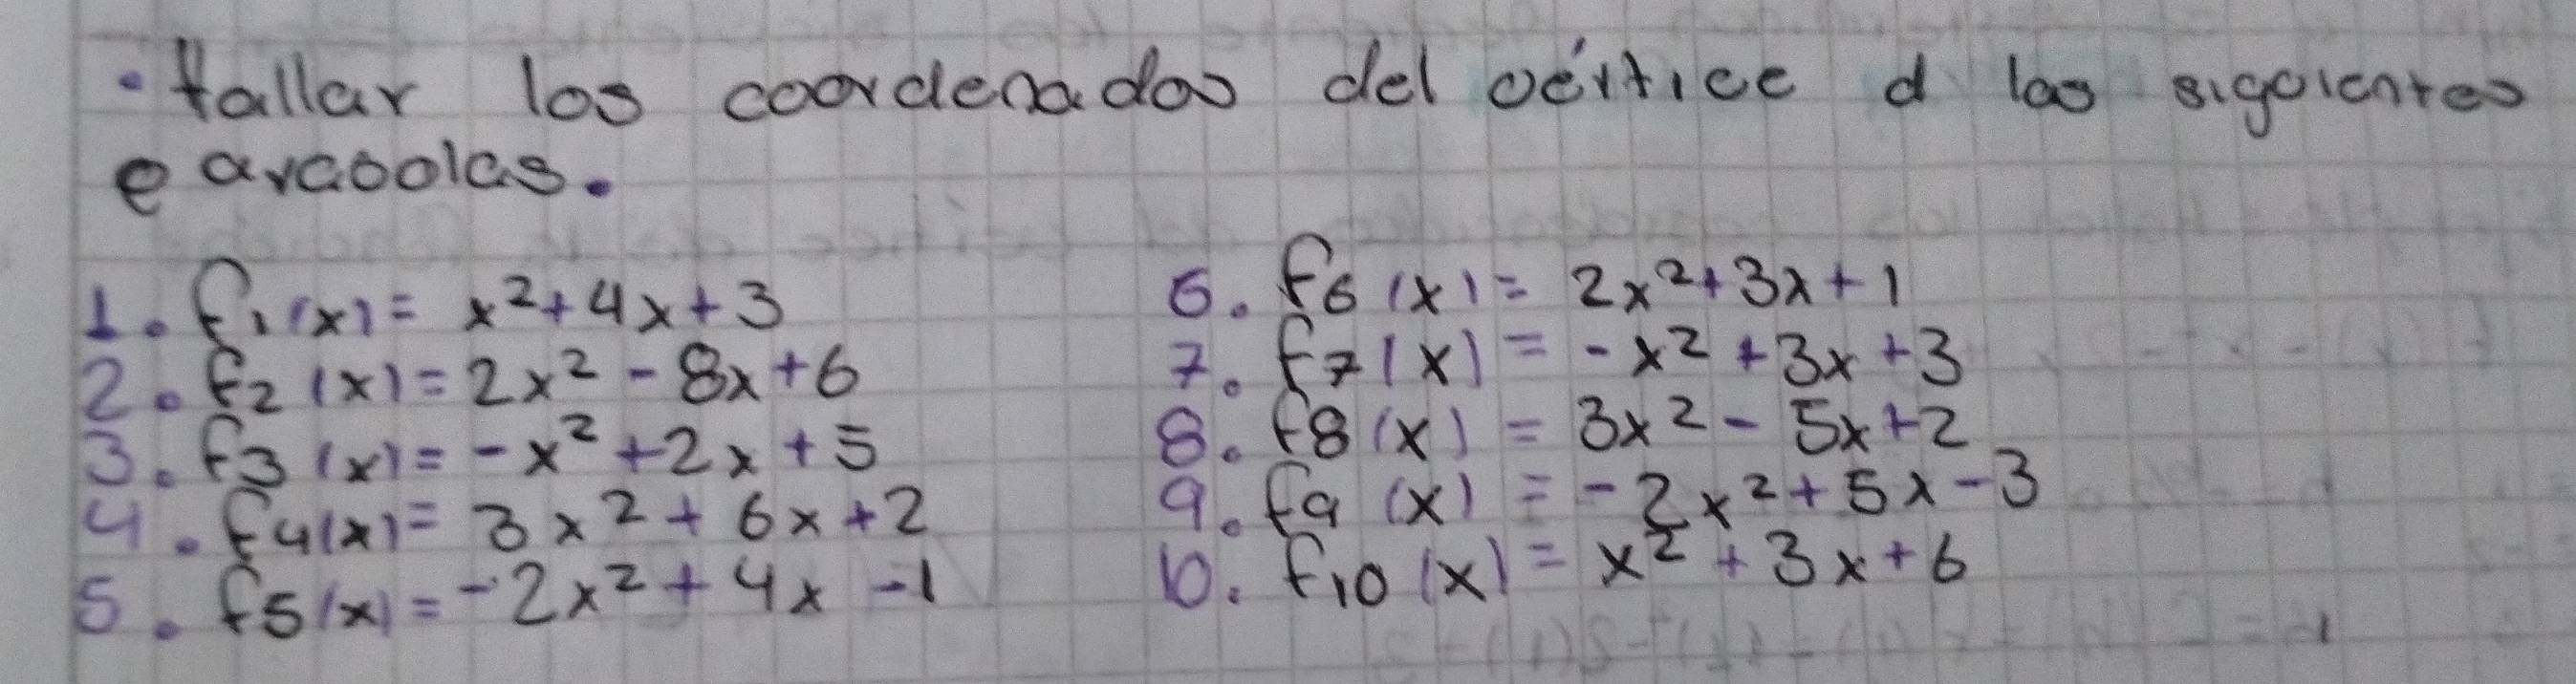 • Hallar las coordenadas del vértice d las siguientes
parabolas.
1. f1(x) = x²+4x+3
2. f2(x) = 2x² - 8x+6
3. f3(x) = -x² +2x+5
4. f4(x) = 3x² + 6x+2
5. f5(x) = -2x² + 4x -1
6. f6(x) = 2x²+3x+1
7. f7(x) = -x² +3x+3
8. f8(x) = 3x² - 5x+2
9. f9(x) = -2x²+5x-3
10. f10(x) = x² + 3x+6